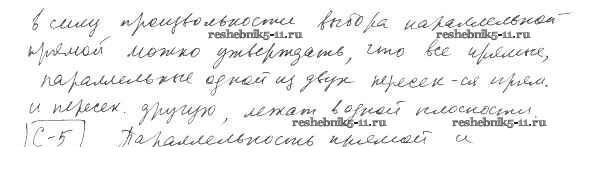 в силу произвольности выбора параллельной
reshebnik5-11.ru reshebnik5-11.ru
прямой можно утверждать, что все прямые,
параллельные одной из двух пересек-ся прям.
и пересек. другую, лежат в одной плоскости.
reshebnik5-11.ru reshebnik5-11.ru
С-5 Параллельность прямой и